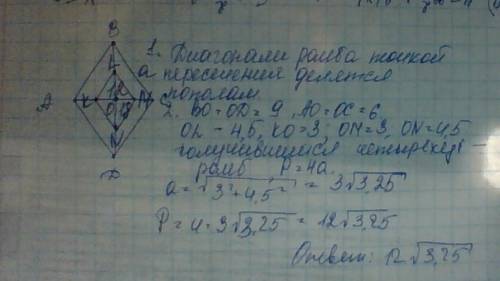 B
1. Диагонали ромба точкой
a пересечения делятся
пополам.
A K O M C
2. BO=OD=9, AO=OC=6,
OL-4,5, KO=3; OM=3, ON=4,5
получившийся четырехуг -
ромб, P=4a.
D
a=√3²+4,5² = 3√3,25
P=4·3√3,25 = 12√3,25
Ответ: 12√3,25